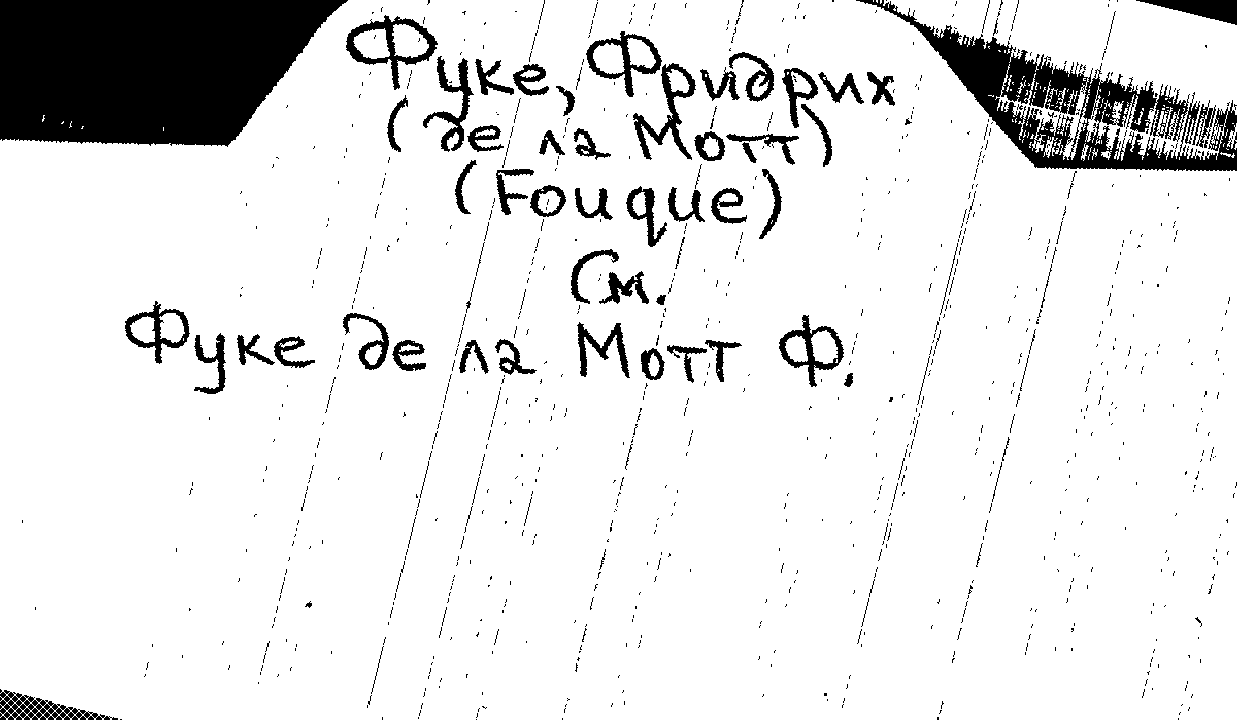 Фуке, Фридрих
(де ла Мотт)
(Fouque)
См.
Фуке де ла Мотт Ф.